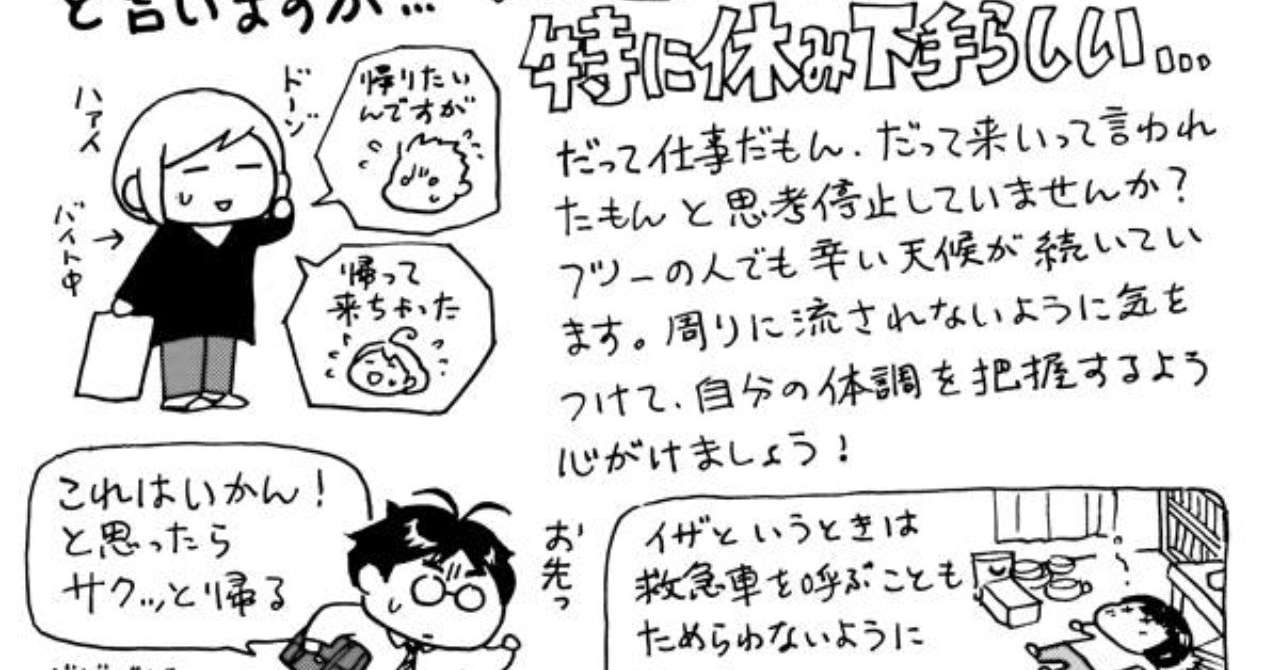 と言いますが…
特に休み下手らしい…
ドーン
帰りたい
んですが
ハァイ
バイト中
帰って
来ちゃった
だって仕事だもん、だって来いって言われ
たもんと思考停止していませんか?
フツーの人でも辛い天候が続いてい
ます。周りに流されないように気を
つけて、自分の体調を把握するよう
心がけましょう!
これはいかん!
と思ったら
サクッと帰る
お先っ
イザというときは
救急車を呼ぶことも
ためらわないように